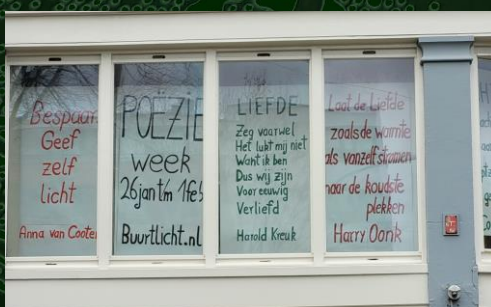 Bespaar
Geef
zelf
licht
Anna van Cooten
POËZIE
week
26jan t/m 1feb
Buurtlicht.nl
LIEFDE
Zeg vaarwel
Het lukt mij niet
Want ik ben
Dus wij zijn
Voor eeuwig
Verliefd
Harold Kreuk
Laat de Liefde
zoals de warmte
als vanzelf stromen
naar de koudste
plekken
Harry Oonk